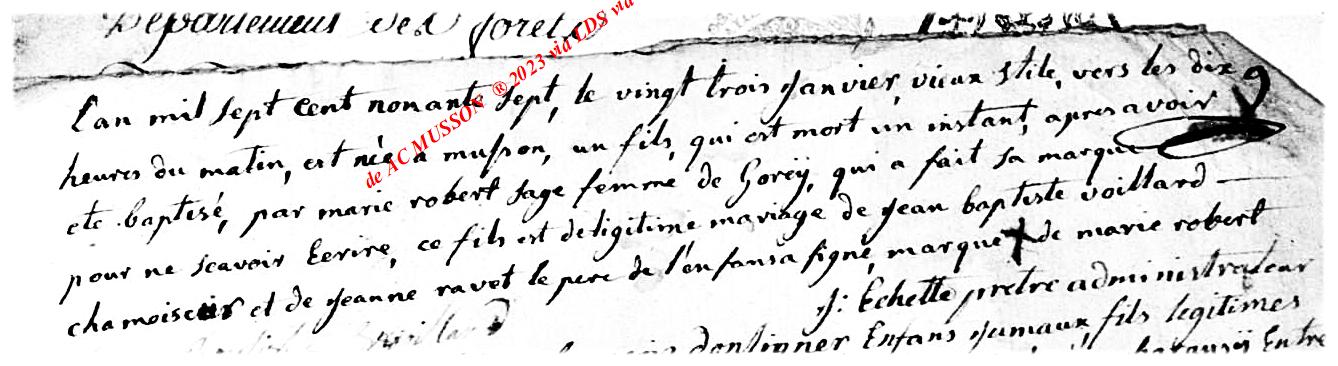 Departement des forets
de ACMUSSON ® 2023 via LDS via
L'an mil sept cent nonante sept, le vingt trois janvier, vieux stile, vers les dix
heures du matin, est née a musson, un fils, qui est mort un instant, apres avoir
ete baptisé, par marie robert sage femme de Gorëy, qui a fait sa marque
pour ne scavoir Ecrire, ce fils est de ligitime mariage de jean baptiste voillard
chamoiseur et de jeanne ravet le pere de l'enfans a signé, marque + de marie robert
j: Echette pretre administrateur
voillard
donsinner Enfans jumaux, fils legitimes
Entre